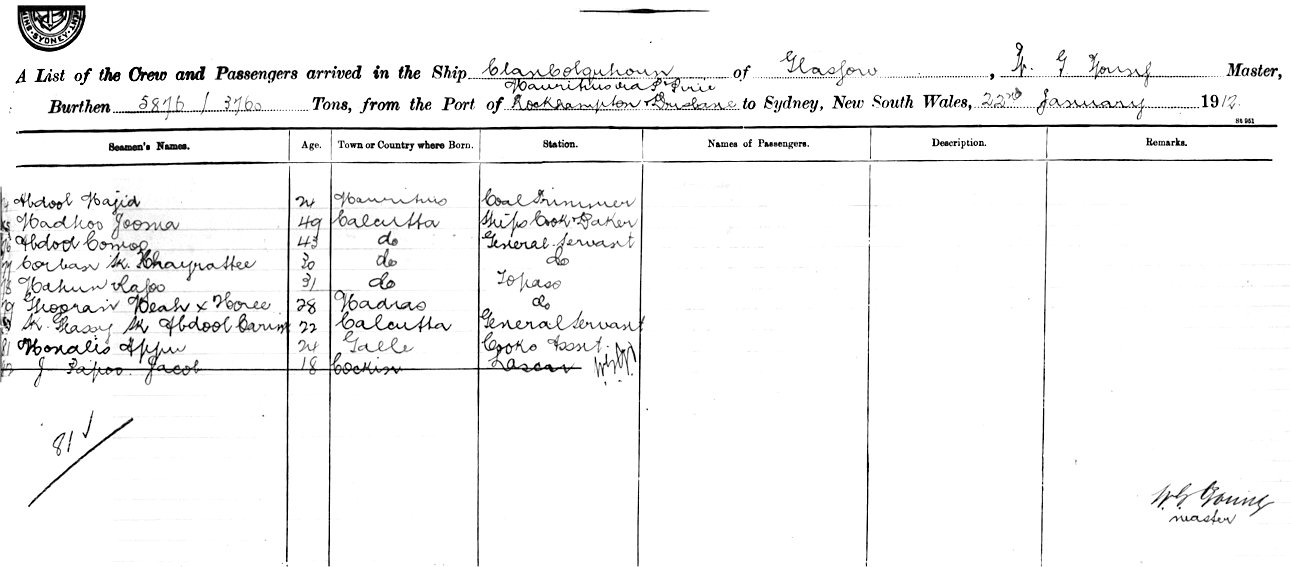 SYDNEY
A List of the Crew and Passengers arrived in the Ship Clan Colquhoun of Glasgow, W. G Young Master,
Mauritius via Pt Pirie
Burthen 5876 / 3760 Tons, from the Port of Rockhampton & Brisbane to Sydney, New South Wales, 22nd January 1912
St 951
Seamen's Names. Age. Town or Country where Born. Station. Names of Passengers. Description. Remarks.
Abdool Majid 24 Mauritius Coal Trimmer
Madhoo Jooma 49 Calcutta Ships Cook & Baker
Abdool 43 do General Servant
Corban Sk. Khayrattee 30 do do
31 do Topass
79 Meah x 28 Madras do
Sk Sk Abdool Carim 22 Calcutta General Servant
81 Monalis Appu 24 Galle Cooks Asst.
J Papoo Jacob 18 Cochin Lascar W.G.Y.
81 ✓
W. G. Young
master